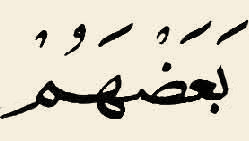 بَعَضُهَمُ